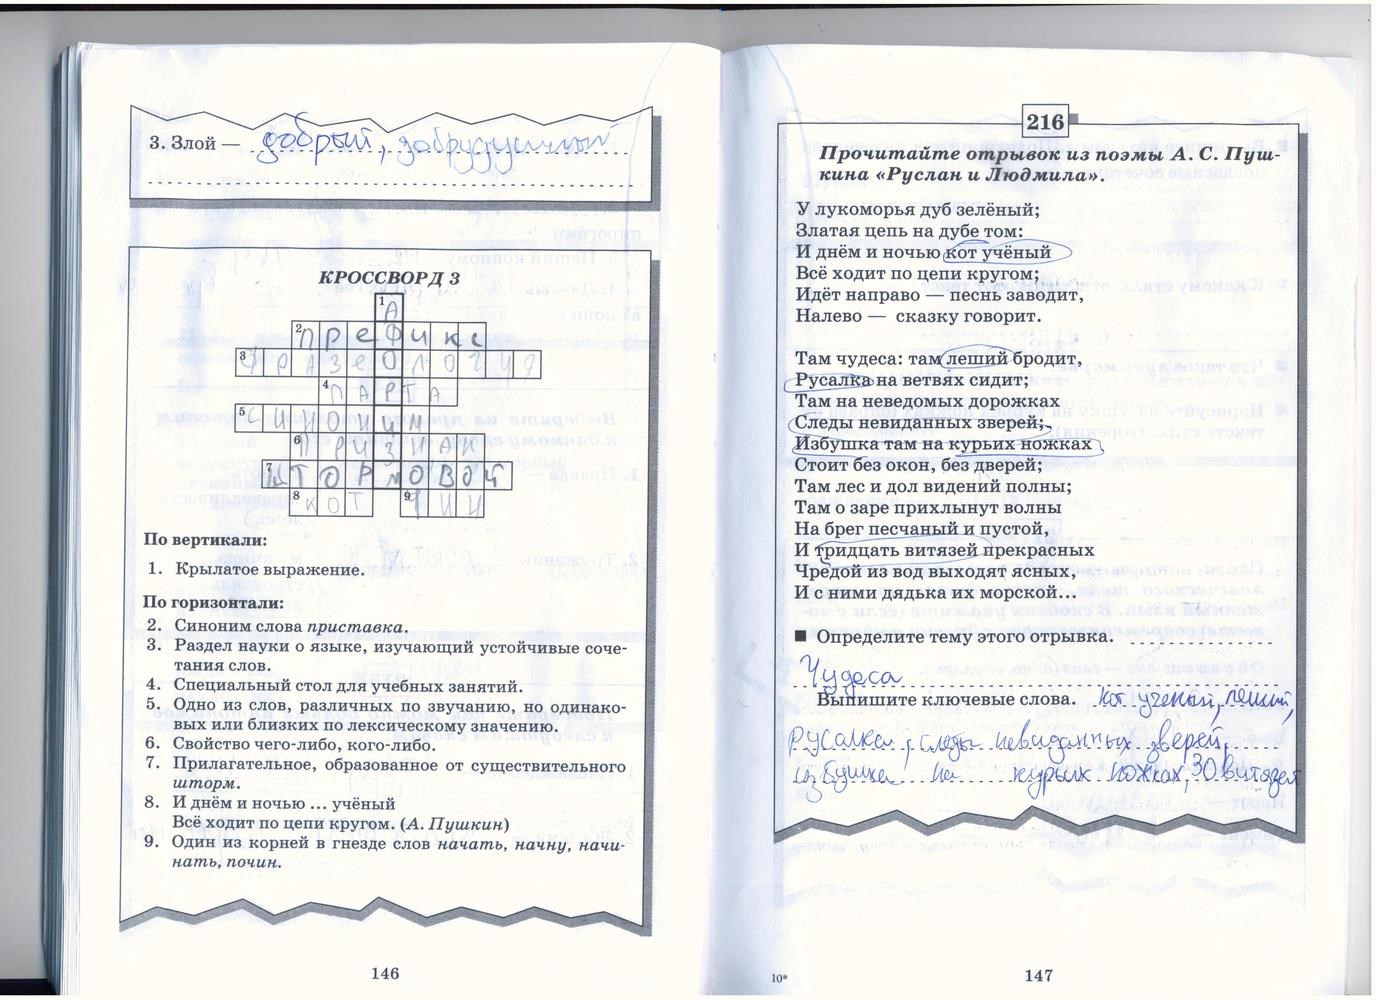 3. Злой — добрый, добродушный
КРОССВОРД 3
1 А
2 префикс
3 фразеология
4 ПАРТА
5 СИНОНИМ
6 ПРИЗНАК
7 ШТОРМОВОЙ
8 КОТ 9 ЧИН
По вертикали:
1. Крылатое выражение.
По горизонтали:
2. Синоним слова приставка.
3. Раздел науки о языке, изучающий устойчивые соче-
тания слов.
4. Специальный стол для учебных занятий.
5. Одно из слов, различных по звучанию, но одинако-
вых или близких по лексическому значению.
6. Свойство чего-либо, кого-либо.
7. Прилагательное, образованное от существительного
шторм.
8. И днём и ночью ... учёный
Всё ходит по цепи кругом. (А. Пушкин)
9. Один из корней в гнезде слов начать, начну, начи-
нать, почин.
146
216
Прочитайте отрывок из поэмы А. С. Пуш-
кина «Руслан и Людмила».
У лукоморья дуб зелёный;
Златая цепь на дубе том:
И днём и ночью кот учёный
Всё ходит по цепи кругом;
Идёт направо — песнь заводит,
Налево — сказку говорит.
Там чудеса: там леший бродит,
Русалка на ветвях сидит;
Там на неведомых дорожках
Следы невиданных зверей;
Избушка там на курьих ножках
Стоит без окон, без дверей;
Там лес и дол видений полны;
Там о заре прихлынут волны
На брег песчаный и пустой,
И тридцать витязей прекрасных
Чредой из вод выходят ясных,
И с ними дядька их морской...
■ Определите тему этого отрывка.
Чудеса
Выпишите ключевые слова. Кот ученый, леший,
русалка, следы невиданных зверей,
избушка на курьих ножках, 30 витязей
10*
147